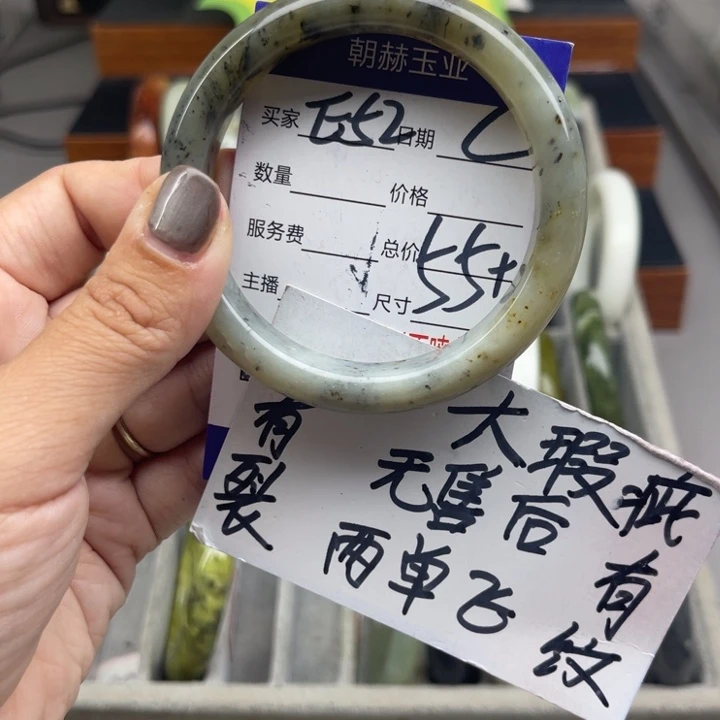 朝赫玉业
买家 日期
数量 价格
服务费 总价
主播 尺寸 55+
有裂
大瑕疵
无售后
两单飞
有纹